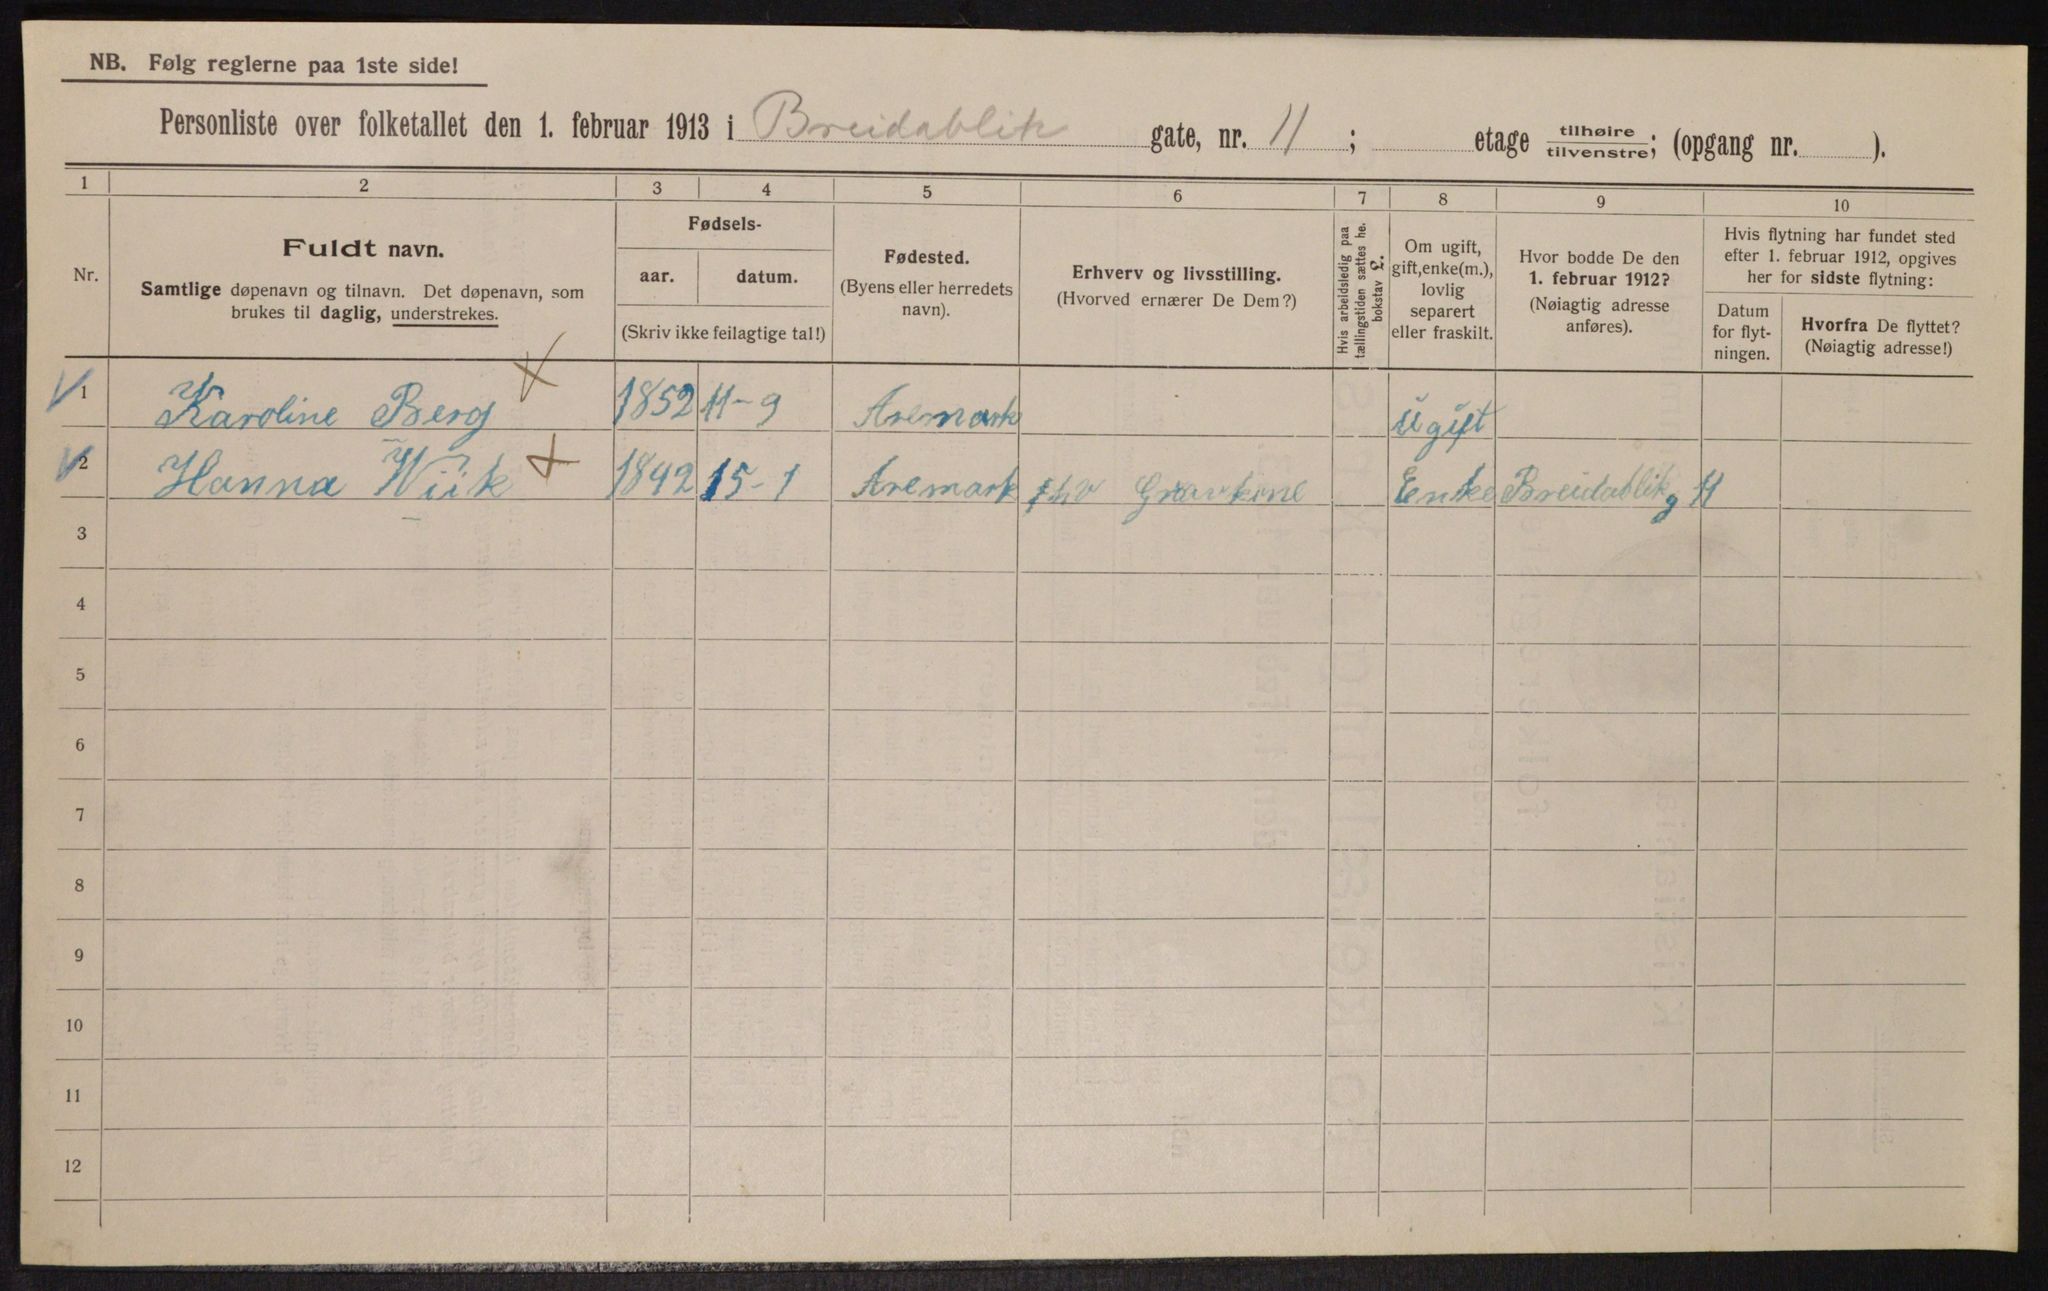 NB. Følg reglerne paa 1ste side!
Personliste over folketallet den 1. februar 1913 i Breidablik gate, nr. 11; etage tilhøire tilvenstre; (opgang nr. ).
1 2 3 4 5 6 7 8 9 10
Nr.
Fuldt navn.
Samtlige døpenavn og tilnavn. Det døpenavn, som
brukes til daglig, understrekes.
Fødsels-
aar. datum.
(Skriv ikke feilagtige tal!)
Fødested.
(Byens eller herredets
navn).
Erhverv og livsstilling.
(Hvorved ernærer De Dem?)
Hvis arbeidsledig paa
tællingstiden sættes her
bokstav L.
Om ugift,
gift, enke(m.),
lovlig
separert
eller fraskilt.
Hvor bodde De den
1. februar 1912?
(Nøiagtig adresse
anføres).
Hvis flytning har fundet sted
efter 1. februar 1912, opgives
her for sidste flytning:
Datum
for flyt-
ningen.
Hvorfra De flyttet?
(Nøiagtig adresse!)
1 Karoline Berg 1852 11-9 Aremark ugift
2 Hanna Wiik 1842 15-1 Aremark Enke Breidablikg 11
3
4
5
6
7
8
9
10
11
12